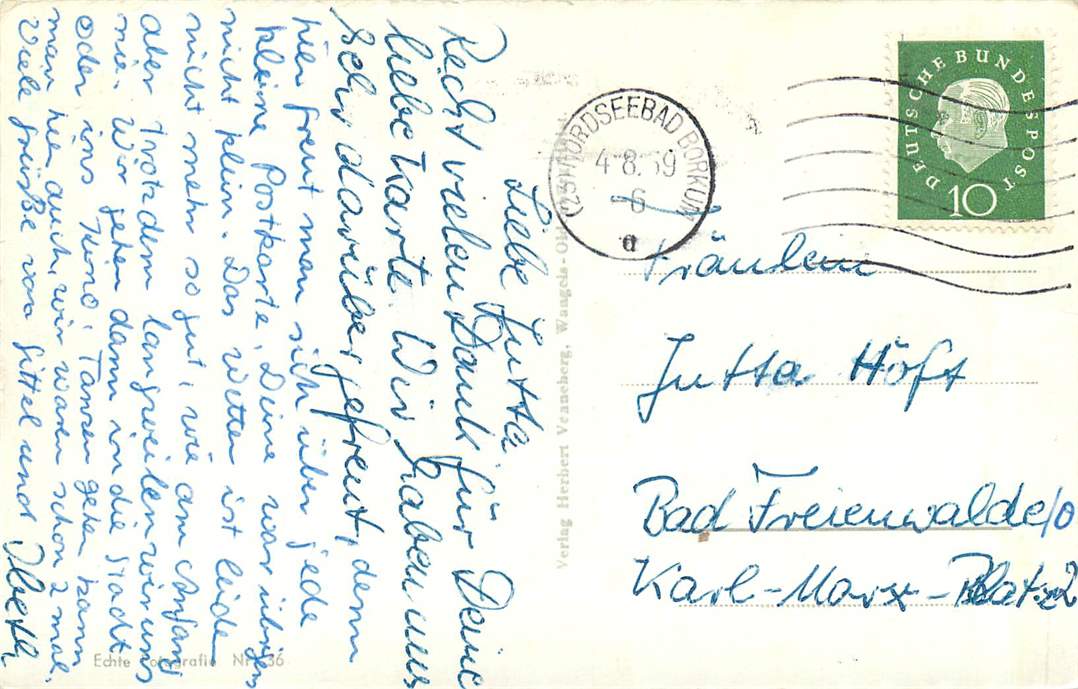 Liebe Jutta!
Recht vielen Dank für Deine
liebe Karte. Wir haben uns
sehr darüber gefreut, denn
hier freut man sich über jede
kleine Postkarte, Deine war übrigens
nicht klein. Das Wetter ist leider
nicht mehr so gut, wie am Anfang
aber trotzdem langweilen wir uns
nie. Wir gehen dann in die Stadt
oder ins Kino. Tanzen gehen kann
man hier auch, wir waren schon 2 mal.
Viele Grüße von Gittel und
Echte Fotografie Nr. 36
Verlag Herbert Venneberg, Wangels-
(23) NORDSEEBAD BORKUM
4-8. 59
-6
a
DEUTSCHE BUNDESPOST
10
Fräulein
Jutta Höft
Bad Freienwalde/O
Karl-Marx-Platz 2